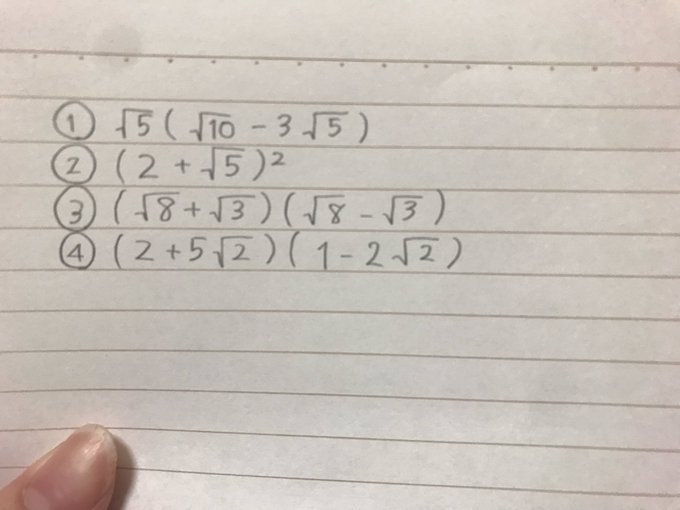 ① √5 ( √10 - 3√5 )
② ( 2 + √5 )²
③ ( √8 + √3 ) ( √8 - √3 )
④ ( 2 + 5√2 ) ( 1 - 2√2 )